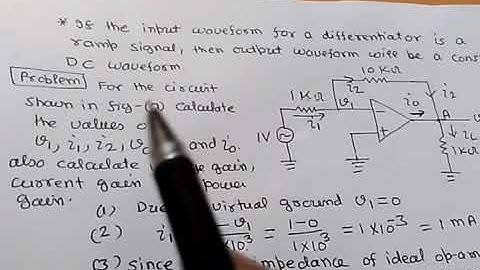 * If the input waveform for a differentiator is a
ramp signal, then output waveform will be a cons
DC waveform
Problem For the circuit
shown in fig-(a) calculate
the values o
v1, i1, i2, v and i0.
also calculate gain,
current gain power
gain.
(1) Du virtual ground v1=0
(2) i1 -v1 / 1×10³ = 1-0 / 1×10³ = 1×10⁻³ = 1 mA
(3) since impedance of ideal op-am
10 KΩ
i2
1KΩ
v1
i1
i0
A
1V
i2
1KΩ